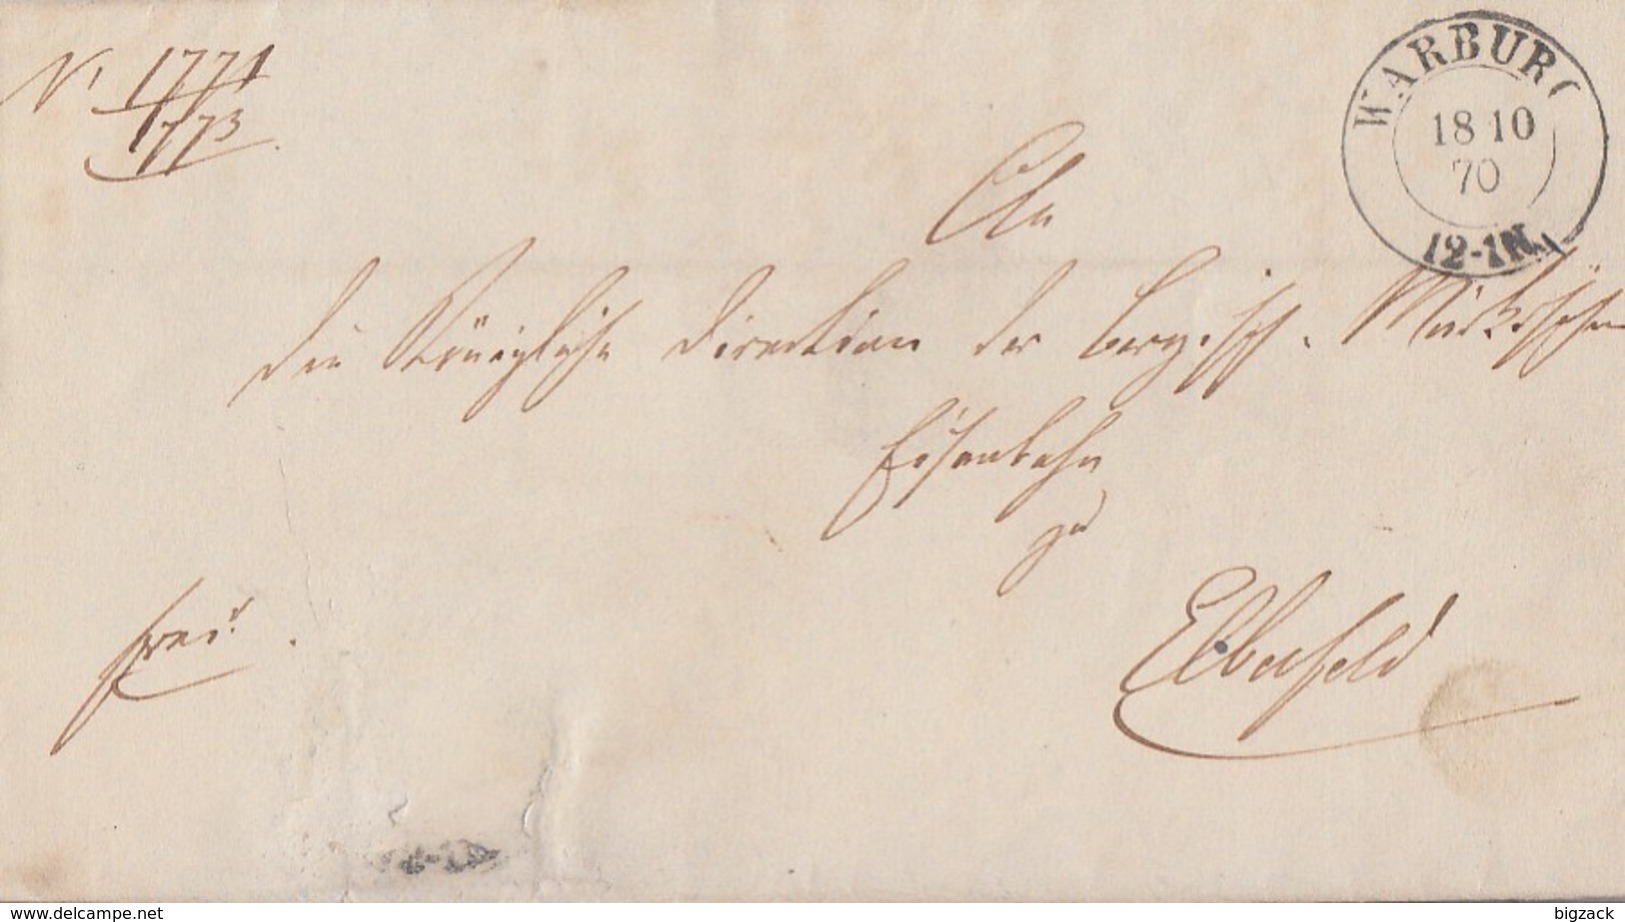 N. 1771
1773.
WARBURG
18 10
70
12-1N.
An
die Königliche Direction der Bergisch-Märkischen
Eisenbahn
zu
Elberfeld
frei.
www.delcampe.net
bigzack